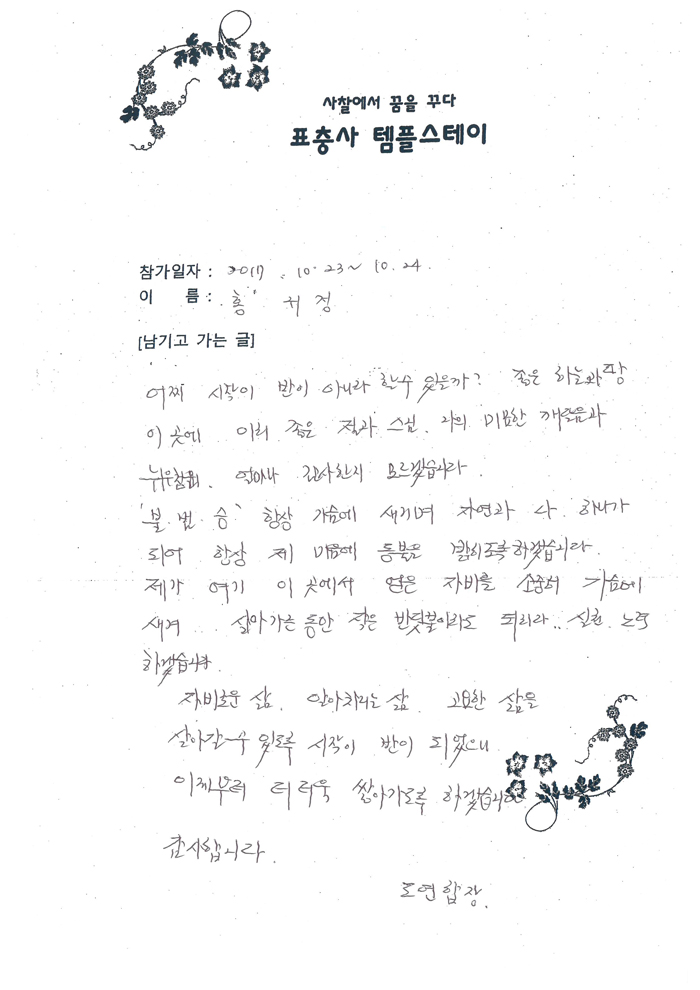 사찰에서 꿈을 꾸다
표충사 템플스테이
참가일자 : 2017. 10. 23 ~ 10. 24.
이 름 : 홍 서 정
[남기고 가는 글]
어찌 시작이 반이 아니라 할수 있을까? 좋은 하늘과 땅
이 곳에 이리 좋은 절과 스님. 나의 미묘한 깨달음과
뉘우침과. 얼마나 감사한지 모르겠습니다.
'불 법 승' 항상 가슴에 새기며 자연과 나 하나가
되어 항상 제 마음에 등불은 밝히도록 하겠습니다.
제가 여기 이 곳에서 얻은 자비를 소중히 가슴에
새겨 살아가는 동안 작은 반딧불이라도 되리라.. 실천 노력
하겠습니다.
자비로운 삶. 알아차리는 삶. 고요한 삶을
살아갈 수 있도록 시작이 반이 되었으니
이제부터 더 더욱 쌓아가도록 하겠습니다.
감사합니다.
도연 합장.